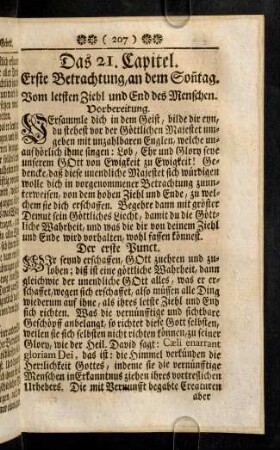 ( 207 )
Das 21. Capitel.
Erste Betrachtung, an dem Soñtag.
Vom letsten Ziehl und End des Menschen.
Vorbereitung.
VErsammle dich in dem Geist, bilde dir eyn,
du stehest vor der Göttlichen Majestet umgeben
mit unzahlbaren Englen, welche unaufhörlich
ihme singen: Lob, Ehr und Glory seye
unserem GOtt von Ewigkeit zu Ewigkeit! Gedencke,
daß diese unendliche Majestet sich würdigen
wolle dich in vorgenommener Betrachtung zuunderweisen,
von dem hohen Ziehl und Ende, zu welchem
sie dich erschaffen. Begehre dann mit gröster
Demut sein Göttliches Liecht, damit du die Göttliche
Wahrheit, und was die dir von deinem Ziehl
und Ende wird vorhalten, wohl fassen könnest.
Der erste Punct.
WIr seynd erschaffen, GOtt zuehren und zuloben;
diß ist eine göttliche Wahrheit, dann
gleichwie der unendliche GOtt alles, was er erschaffet,
wegen sich erschaffet, also müssen alle Ding
wiederum auf ihne, als ihres letste Ziehl und End
sich richten. Was die vernünfftige und sichtbare
Geschöpff anbelangt, so richtet diese Gott selbsten,
weilen sie sich selbsten nicht richten können, zu seiner
Glory, wie der Heil. David sagt: Cæli enarrant
gloriam Dei, das ist: die Himmel verkünden die
Herrlichkeit Gottes, indeme sie die vernünfftige
Menschen in Erkanntnus ziehen ihres vortreflichen
Urhebers. Die mit Vernunfft begabte Creaturen
aber